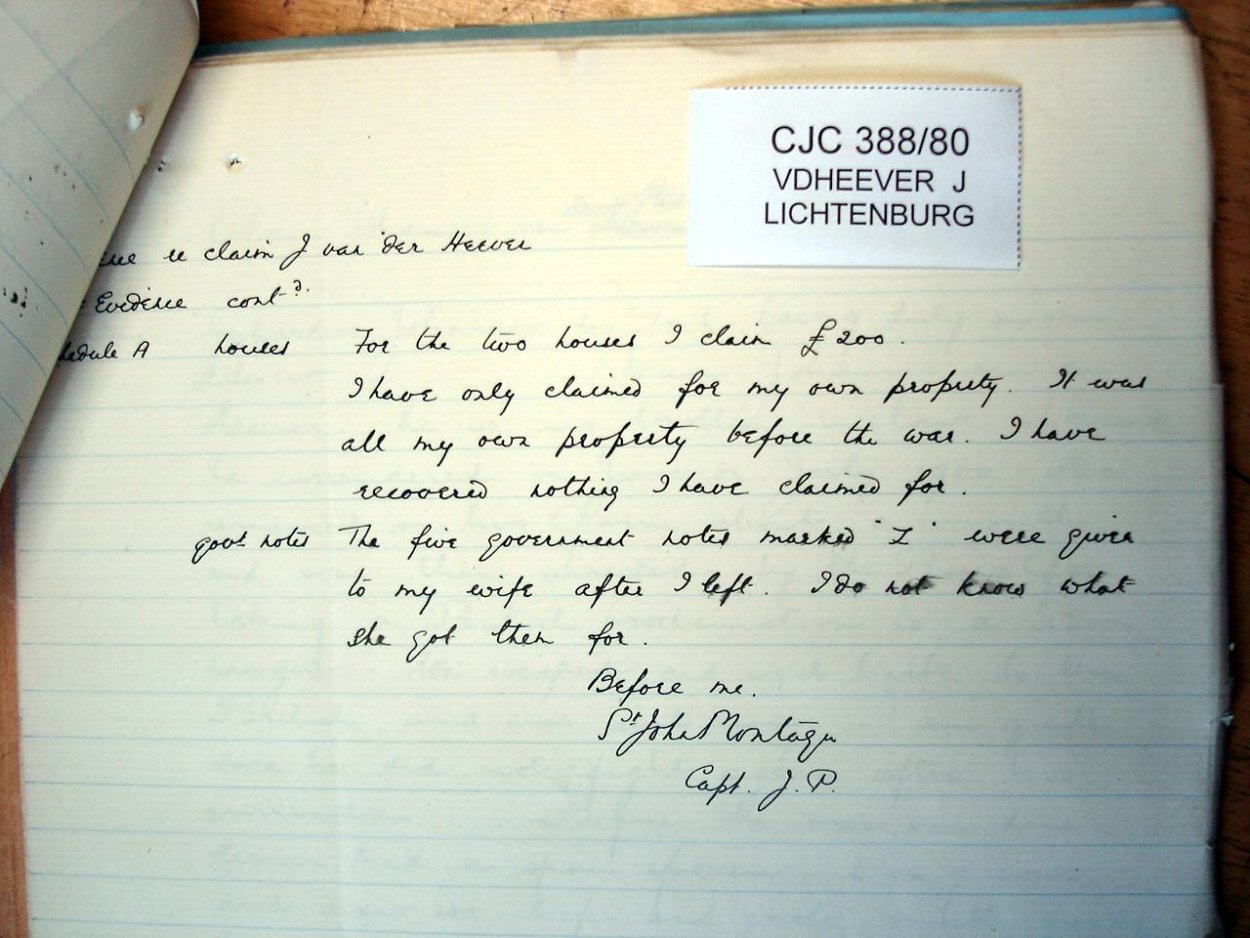 CJC 388/80
VDHEEVER J
LICHTENBURG
re claim J van der Heever
Evidence contd.
hedule A houses For the two houses I claim £200.
I have only claimed for my own property. It was
all my own property before the war. I have
recovered nothing I have claimed for.
govt notes The five government notes marked "Z" were given
to my wife after I left. I do not know what
she got them for.
Before me.
St John Montagu
Capt. J.P.